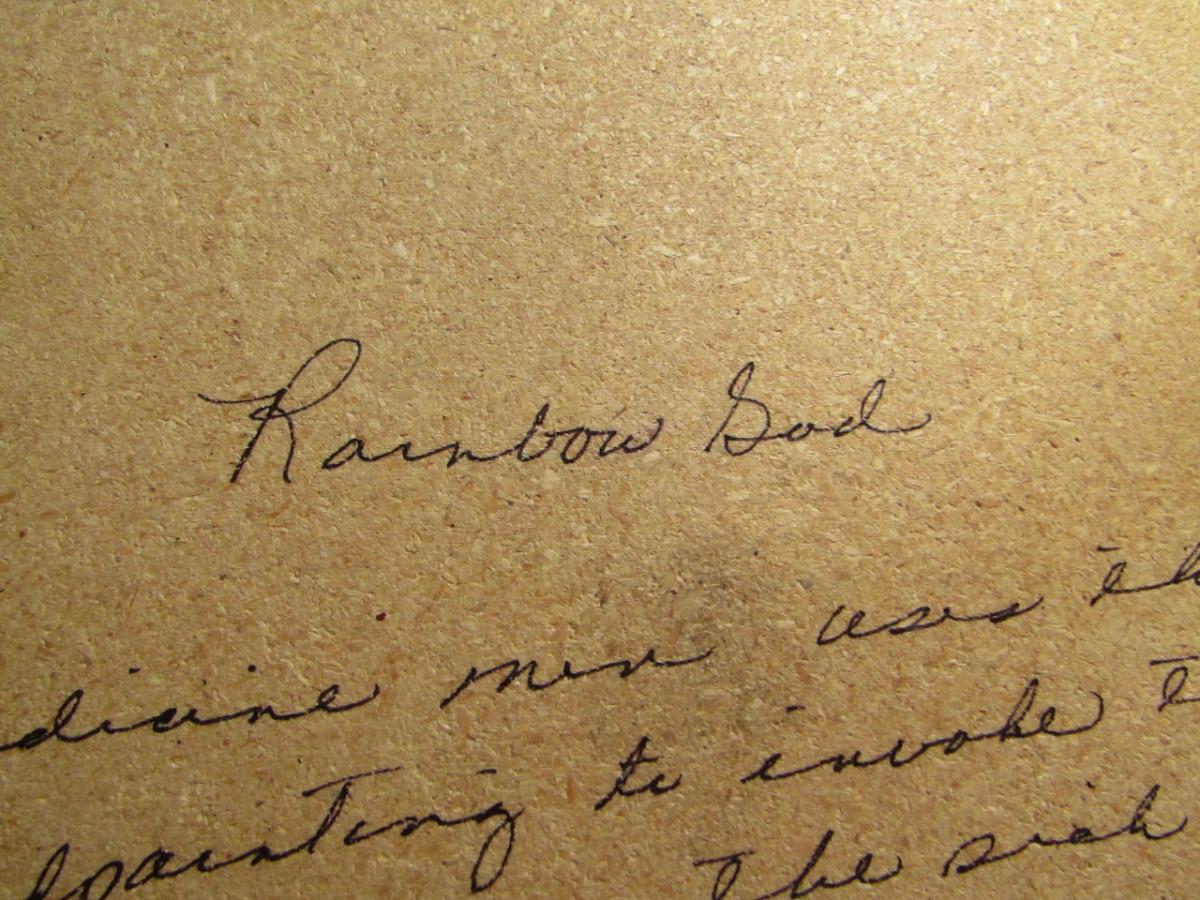 Rainbow God
dicine men uses th
dpainting to invoke t
the sick